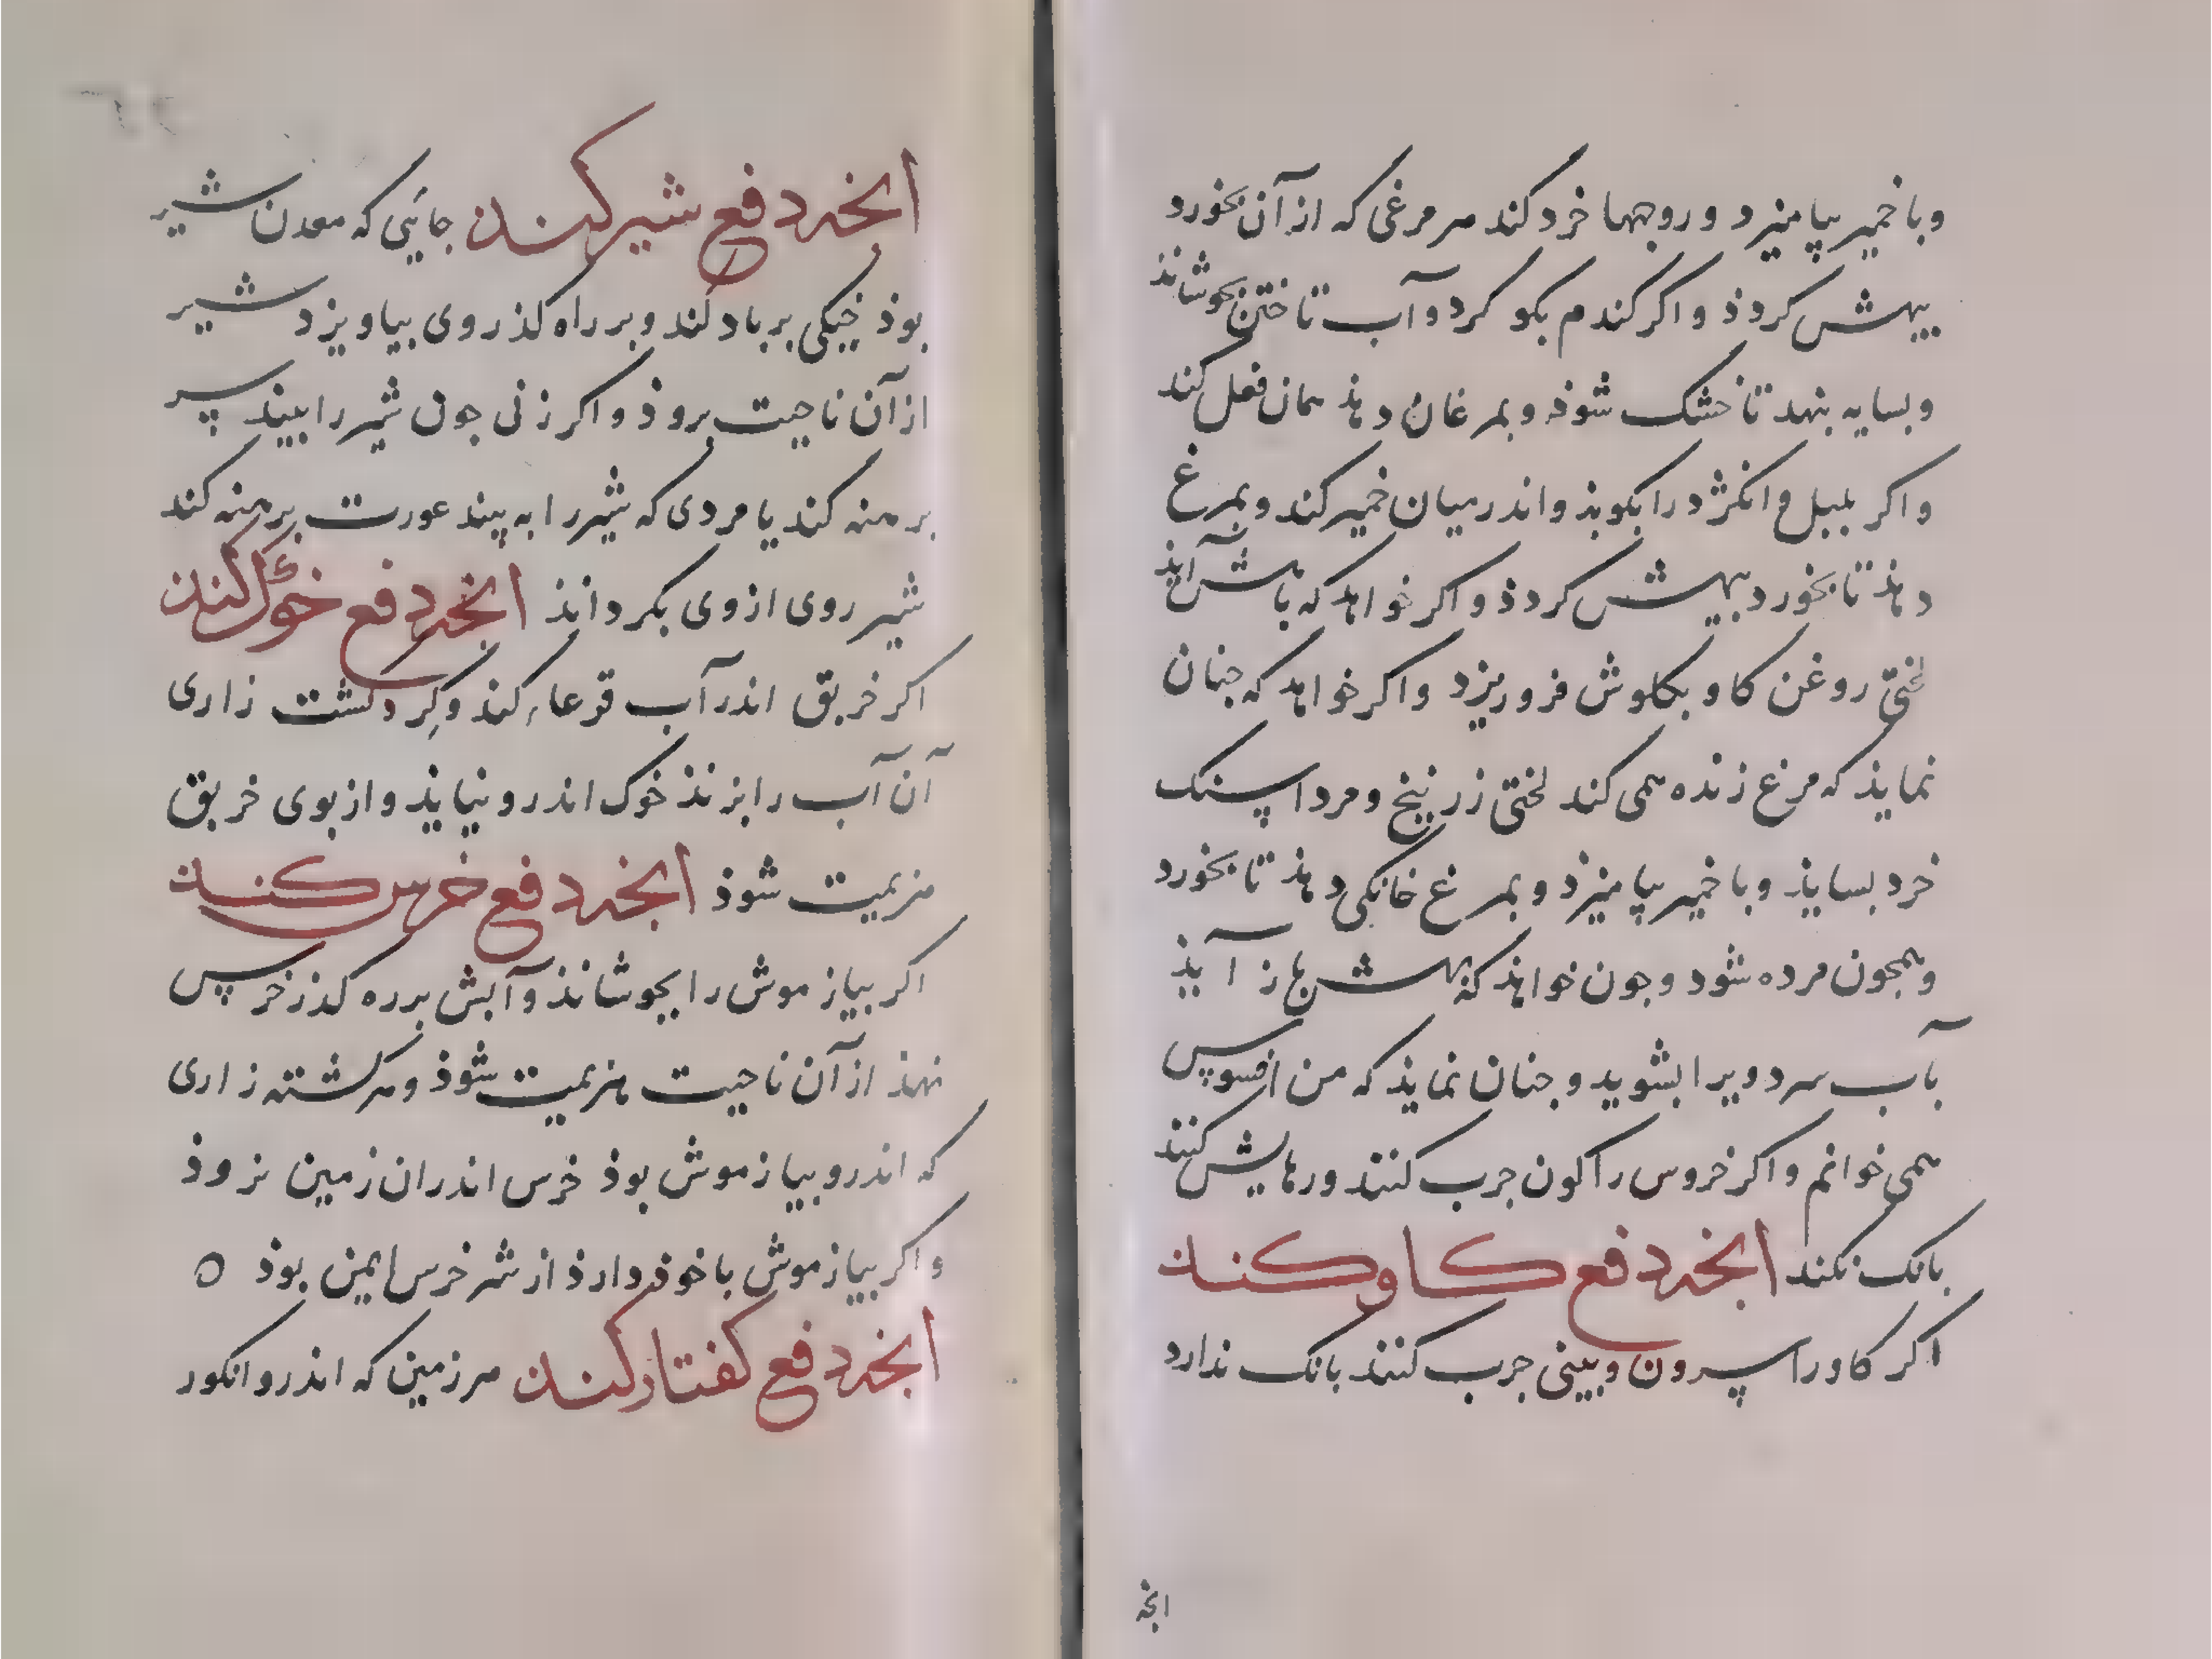 وبا خمیر بیامیزد و روجهها خرد کند هر مرغی که از آن بخورد
بیهش کردذ و اکر کندم بکو کرد و آب تا ختن بجوشانذ
و بسایه بنهد تا خشک شوذ و بمرغان دهذ همان فعل کند
و اکر بلبل و انکژد را بکوبذ و اندر میان خمیر کند و بمرغ
دهذ تا بخورد بیهش کردذ و اکر خواهد که باهش آیذ
لختی روغن کاو بکلوش فرو ریزد و اکر خواهد که جنان
نمایذ که مرغ زنده همی کند لختی زرنیخ و مرداسنک
خرد بسایذ و با خمیر بیامیزد و بمرغ خانکی دهذ تا بخورد
و همجون مرده شود و جون خواهذ که بهش باز آیذ
بآب سرد ویرا بشوید و جنان نمایذ که من افسوس
همی خوانم و اکر خروس را کون جرب کنند و رهایش کنند
بانک نکند انجه دفع کاو کند
اکر کاو را سرون و بینی جرب کنند بانک ندارد
انجه
انجه دفع شیر کند جائی که معدن شیر
بوذ خیکی بر باد کند و بر راه کذر وی بیاویزد شیر
از آن ناحیت بروذ و اکر زنی جون شیر را بیند سر
برهنه کند یا مردی که شیر را به بیند عورت برهنه کند
شیر روی از وی بکرداند انجه دفع خوک کند
اکر خربق اندر آب قرعاء کند و کرد کشت زاری
آن آب را بزنذ خوک اندرو نیایذ و از بوی خربق
هزیمت شوذ انجه دفع خرس کند
اکر بیاز موش را بجوشانذ و آبش بر ره کذر خرس
نهذ از آن ناحیت هزیمت شوذ و هر کشته زاری
که اندرو بیاز موش بوذ خرس اندران زمین نروذ
و اکر بیاز موش با خوذ دارذ از شر خرس ایمن بوذ ه
انجه دفع کفتار کند هر زمین که اندرو انکور